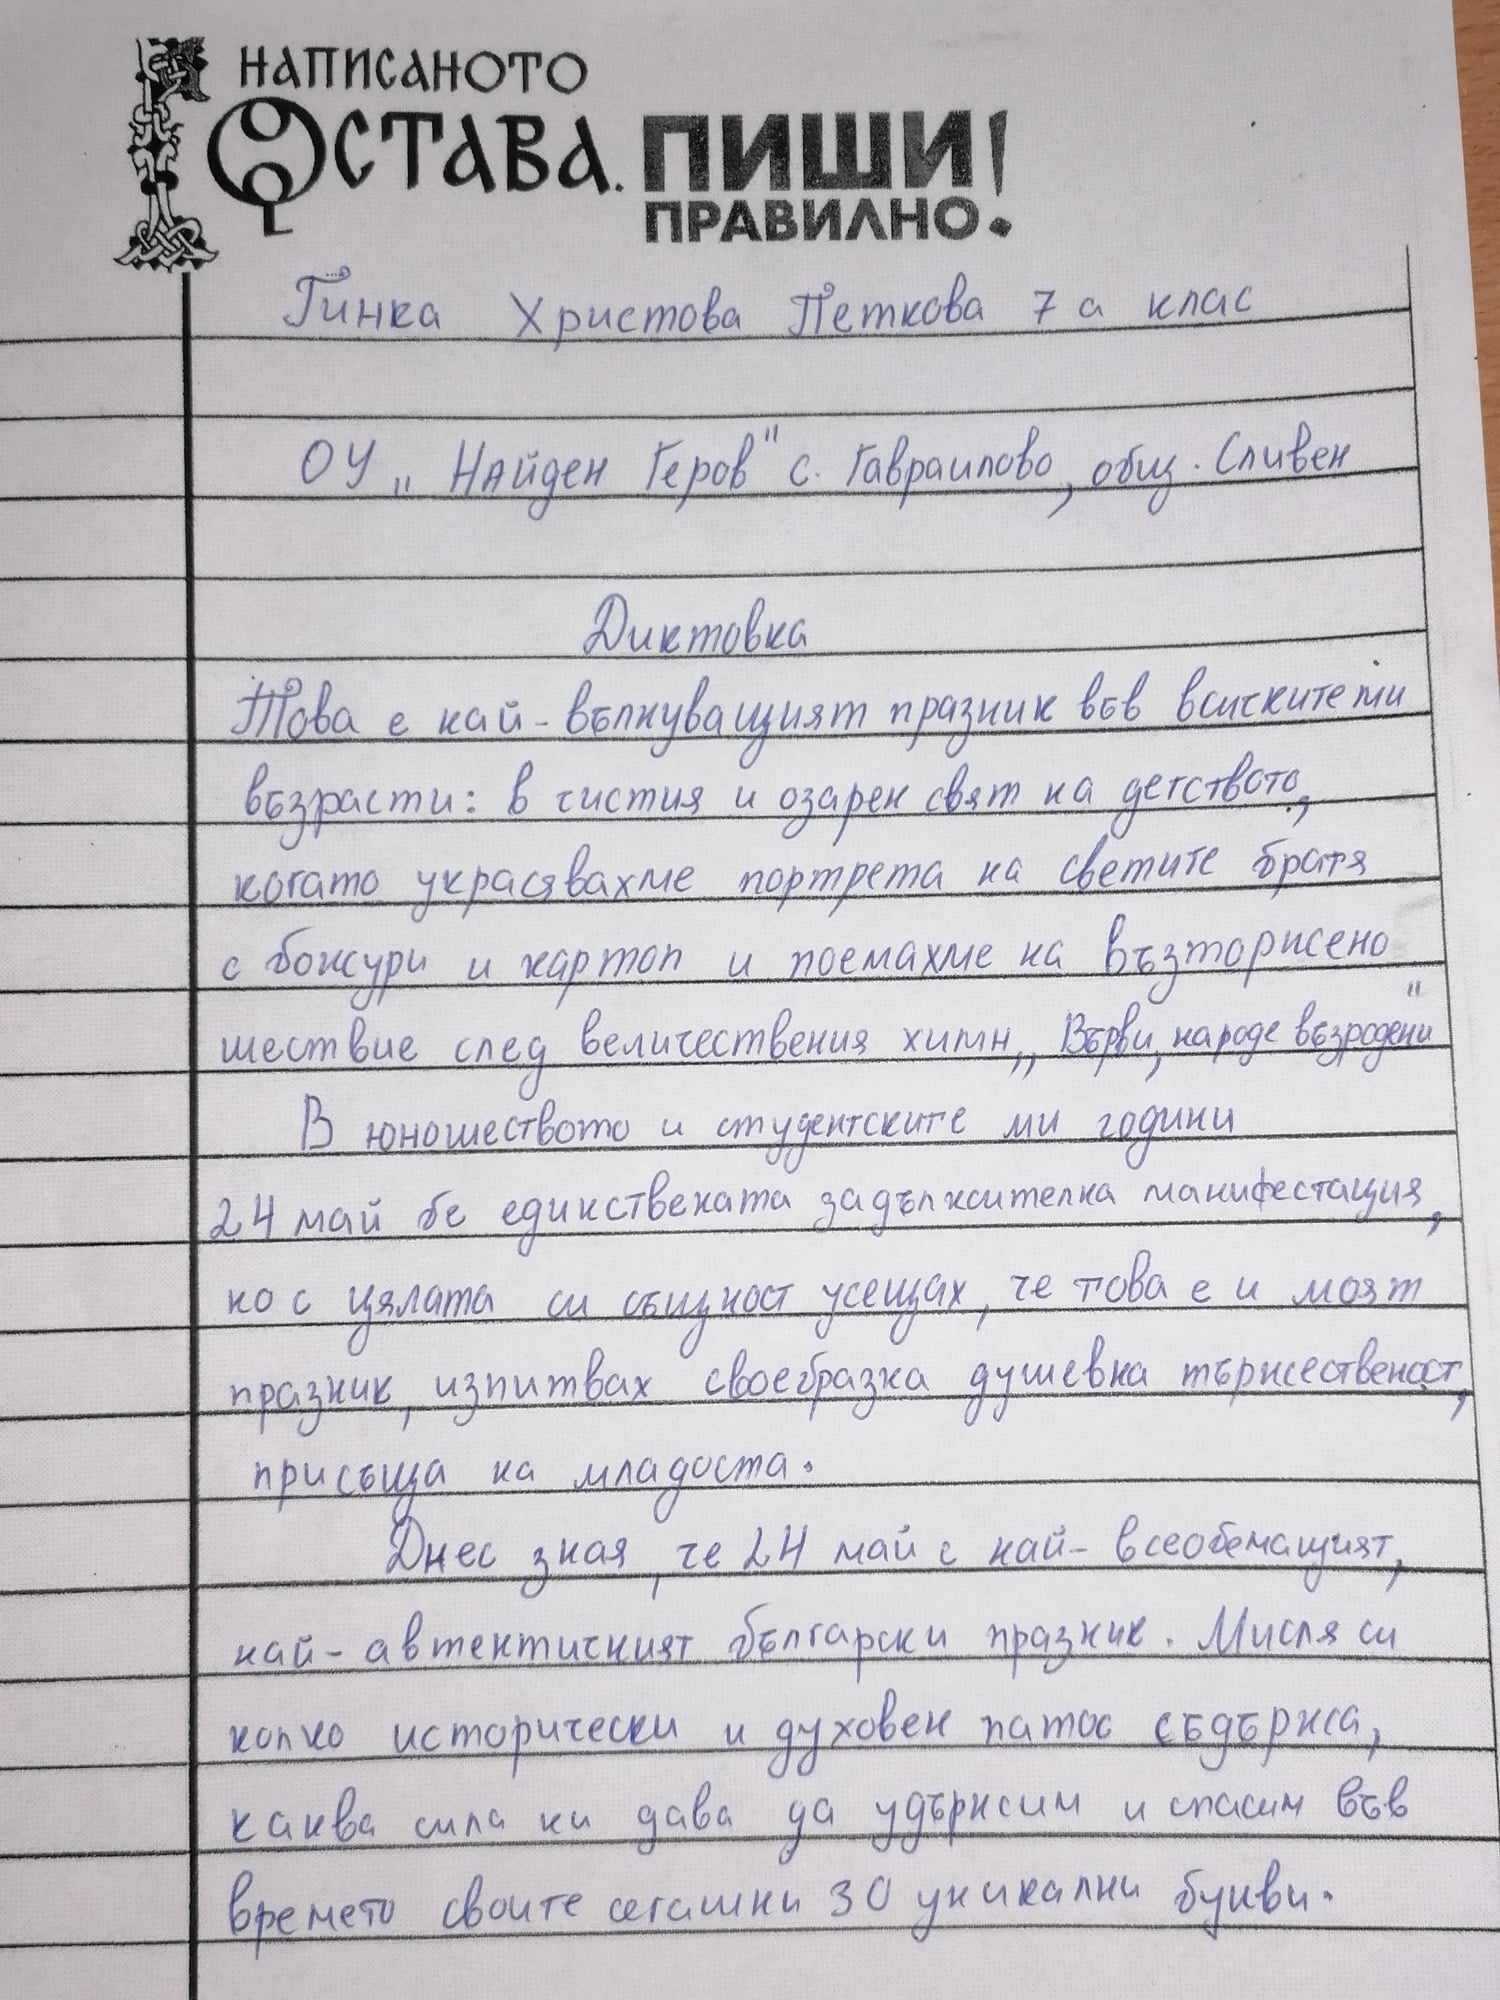 НАПИСАНОТО
ОСТАВА. ПИШИ
ПРАВИЛНО!
Гинка Христова Петкова 7 а клас
ОУ „Найден Геров" с. Гавраилово, общ. Сливен
Диктовка
Това е най-вълнуващият празник във всичките ми
възрасти: в чистия и озарен свят на детството,
когато украсявахме портрета на светите братя
с божури и картоп и поемахме на възторжено
шествие след величествения химн „Върви, народе възродени"
В юношеството и студентските ми години
24 май бе единствената задължителна манифестация,
но с цялата си същност усещах, че това е и моят
празник, изпитвах своебразна душевна тържественост,
присъща на младоста.
Днес зная, че 24 май е най-всеобемащият,
най-автентичният български празник. Мисля си
колко исторически и духовен патос съдържа,
каква сила ни дава да удържим и спасим във
времето своите сегашни 30 уникални букви.